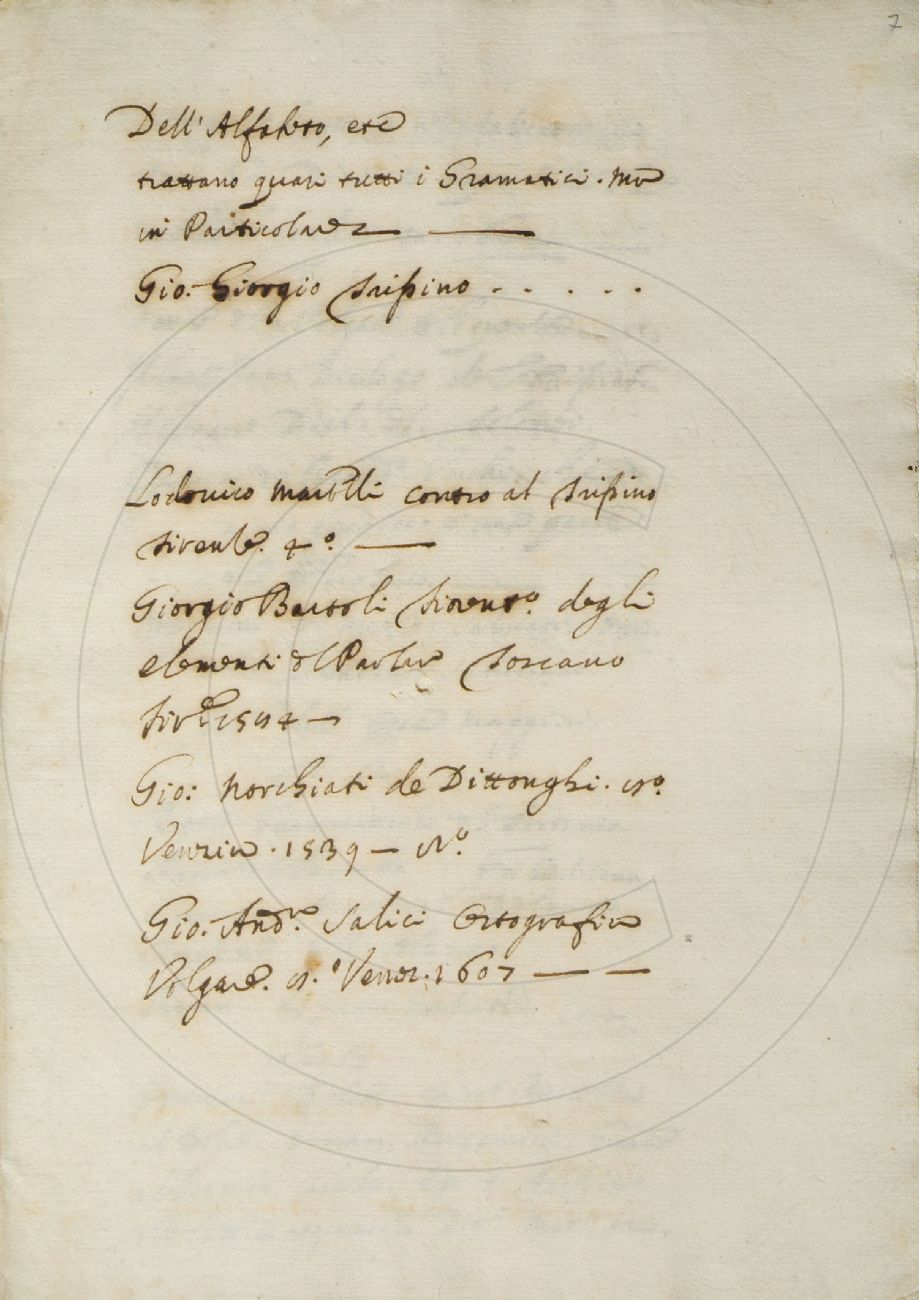 7
Dell' Alfabeto, etc
trattano quasi tutti i Gramatici. Ma
in Particolare
Gio: Giorgio Trissino . . . . .
Lodovico Martelli contro al Trissino
Firenze. 4º. —
Giorgio Bartoli Fiorentº. degli
elementi del Parlar Toscano
Firze 1584 —
Gio: Norchiati de Dittonghi.
Venezia. 1539 —
Gio: Andra. Salici Ortografia
Volgare. Venez. 1607 — —